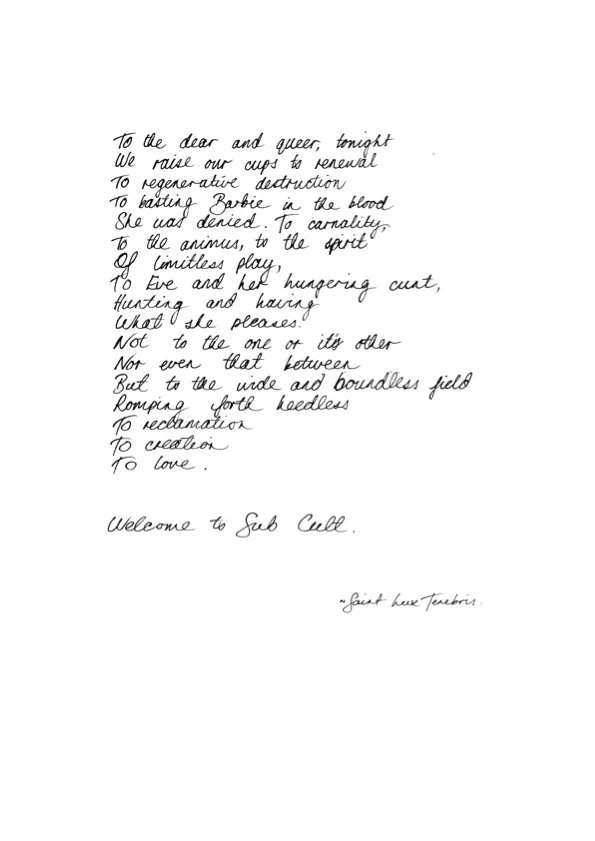 To the dear and queer, tonight
We raise our cups to renewal
To regenerative destruction
To basting Barbie in the blood
She was denied. To carnality,
To the animus, to the spirit
Of limitless play,
To Eve and her hungering cunt,
Hunting and having
What she pleases.
Not to the one or it's other
Nor even that between
But to the wide and boundless field
Romping forth heedless
To reclamation
To creation
To love.
Welcome to Sub Cult.
~Saint Lux Tenebris.